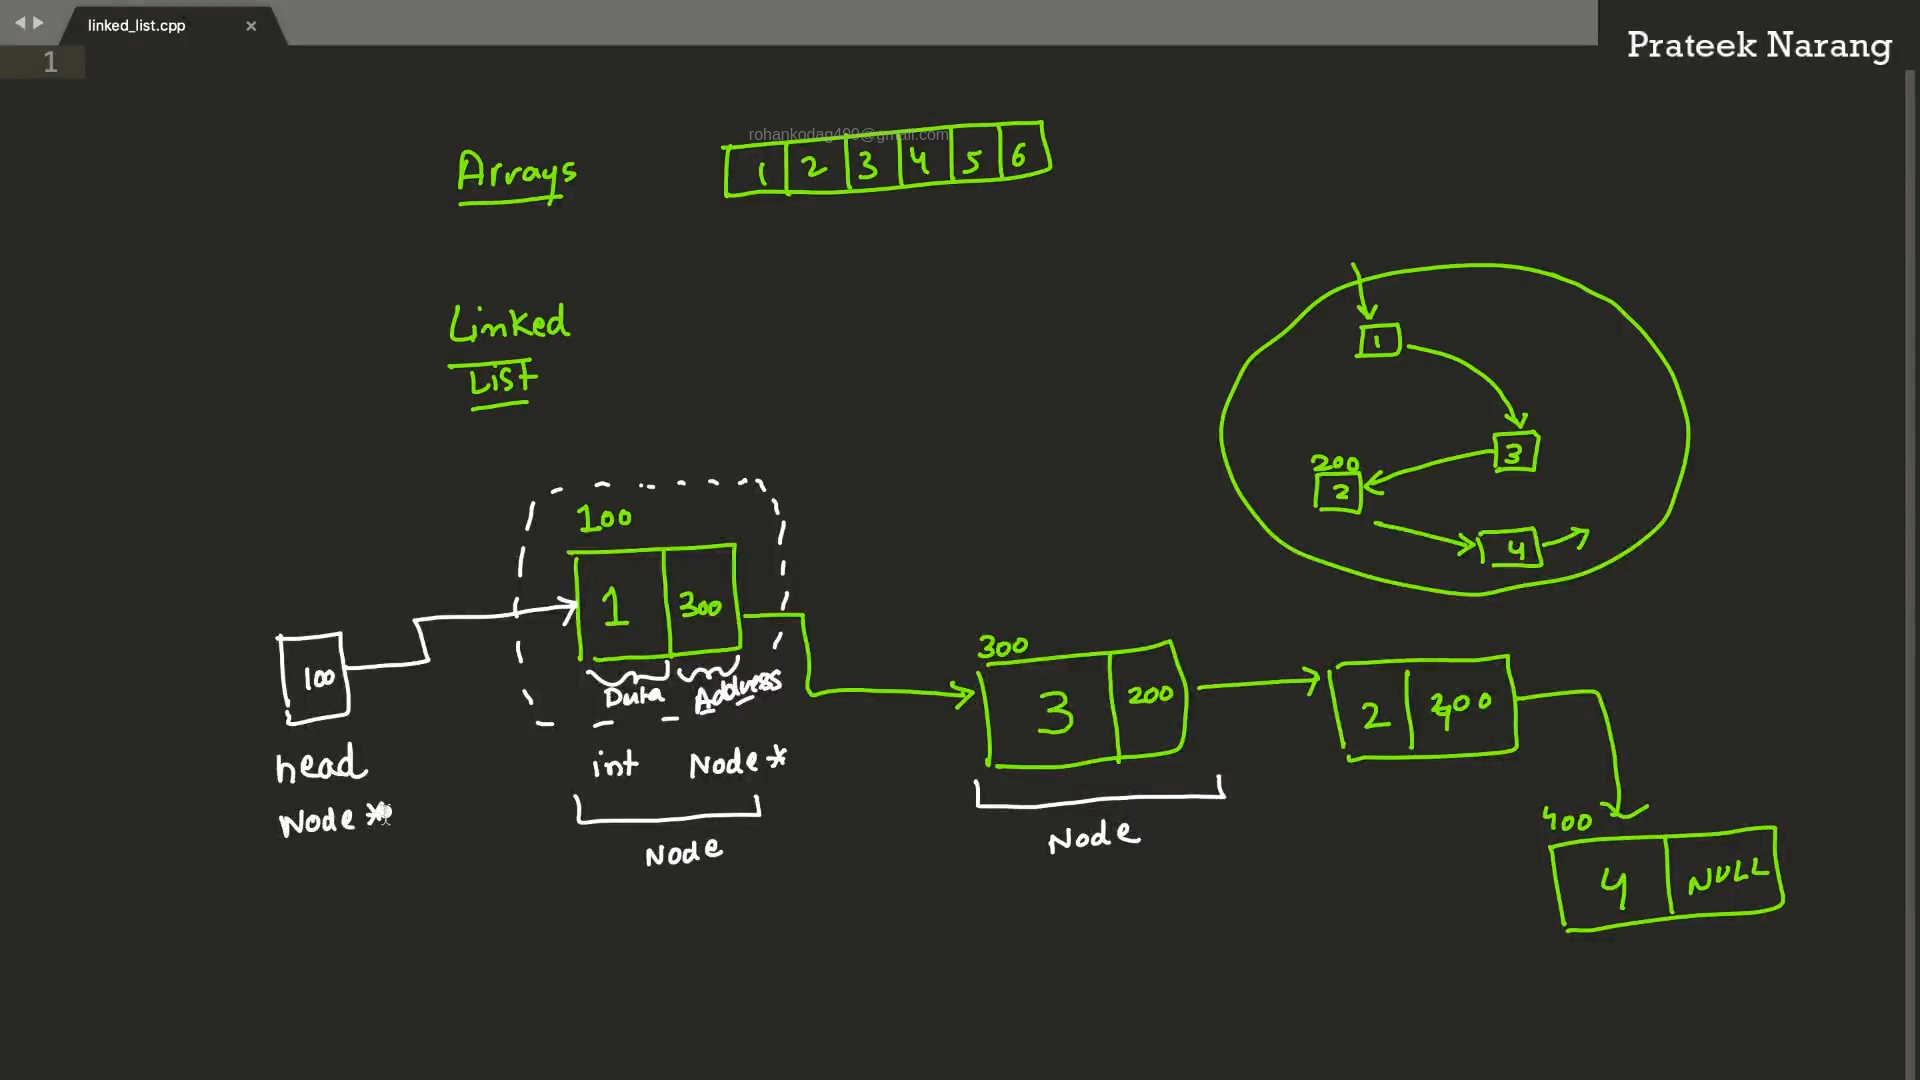 linked_list.cpp ×
Prateek Narang
1
rohankodag499@gmail.com
Arrays
1 2 3 4 5 6
Linked
List
1
3
200
2
4
100
1 300
Data Address
int Node*
Node
100
head
Node *
300
3 200
Node
2 400
400
4 NULL